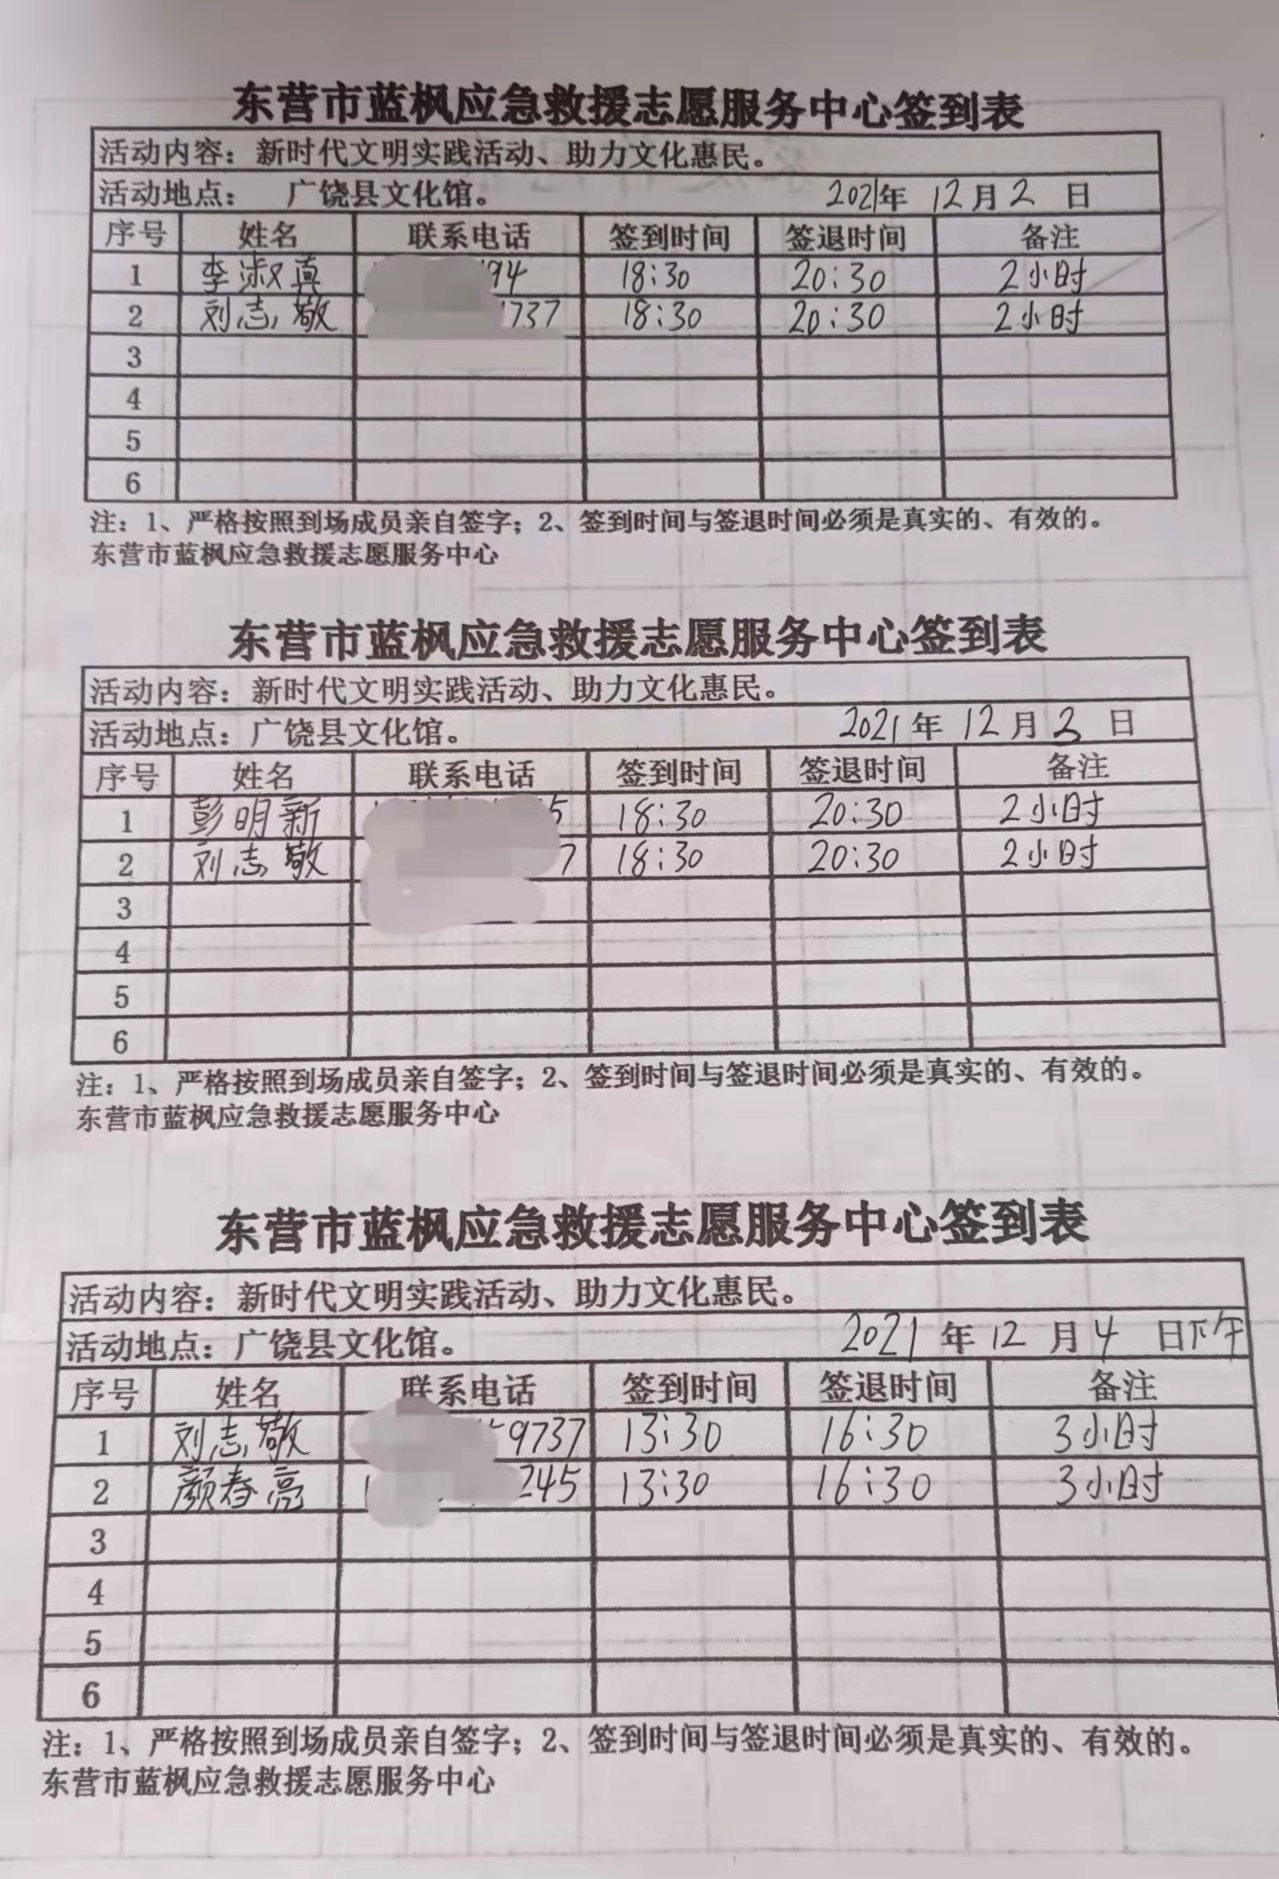 东营市蓝枫应急救援志愿服务中心签到表
活动内容：新时代文明实践活动、助力文化惠民。
活动地点： 广饶县文化馆。 2021年 12月2 日
序号 姓名 联系电话 签到时间 签退时间 备注
1 李淑真 94 18:30 20:30 2小时
2 刘志敬 1737 18:30 20:30 2小时
3
4
5
6
注：1、严格按照到场成员亲自签字；2、签到时间与签退时间必须是真实的、有效的。
东营市蓝枫应急救援志愿服务中心
东营市蓝枫应急救援志愿服务中心签到表
活动内容：新时代文明实践活动、助力文化惠民。
活动地点：广饶县文化馆。 2021年 12月3 日
序号 姓名 联系电话 签到时间 签退时间 备注
1 彭明新 5 18:30 20:30 2小时
2 刘志敬 7 18:30 20:30 2小时
3
4
5
6
注：1、严格按照到场成员亲自签字；2、签到时间与签退时间必须是真实的、有效的。
东营市蓝枫应急救援志愿服务中心
东营市蓝枫应急救援志愿服务中心签到表
活动内容：新时代文明实践活动、助力文化惠民。
活动地点：广饶县文化馆。 2021 年 12 月 4 日下午
序号 姓名 联系电话 签到时间 签退时间 备注
1 刘志敬 9737 13:30 16:30 3小时
2 颜春亮 1 245 13:30 16:30 3小时
3
4
5
6
注：1、严格按照到场成员亲自签字；2、签到时间与签退时间必须是真实的、有效的。
东营市蓝枫应急救援志愿服务中心